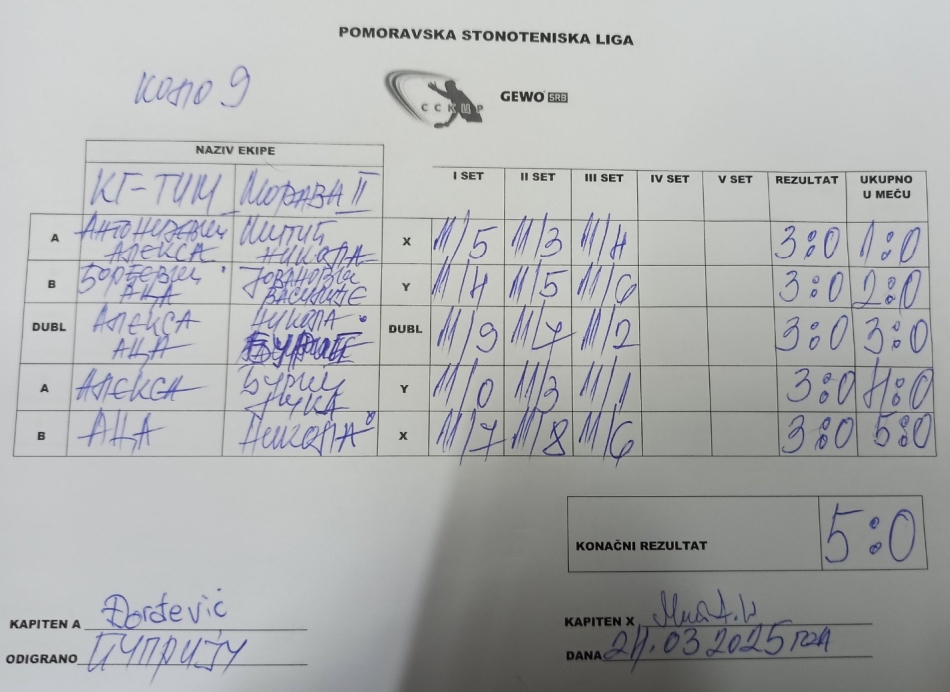 POMORAVSKA STONOTENISKA LIGA
КОЛО 9
ССКЦР GEWO SRB
NAZIV EKIPE
I SET II SET III SET IV SET V SET REZULTAT UKUPNO U MEČU
КГ-ТИМ МОРАВА II
A АНТОНИЈЕВИЋ АЛЕКСА НИКОЛА X 11/5 11/3 11/4 3:0 1:0
B ЂОРЂЕВИЋ АЦА ЈОВАНОВИЋ ВАСИЛИЈЕ Y 11/4 11/5 11/6 3:0 2:0
DUBL АЛЕКСА АЦА НИКОЛА DUBL 11/9 11/7 11/2 3:0 3:0
A АЛЕКСА ЂУРИЋ ЛУКА Y 11/0 11/3 11/1 3:0 4:0
B АЦА НИКОЛА X 11/7 11/8 11/6 3:0 5:0
KONAČNI REZULTAT 5:0
KAPITEN A Đorđević
KAPITEN X
ODIGRANO ЋУПРИЈУ
DANA 24.03.2025